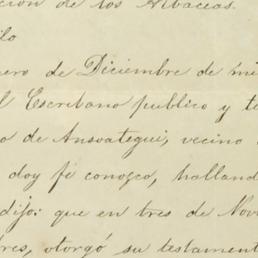 cion de los Albaceas.
ilo
ero de Diciembre de mi
l Escribano publico y te
o de Ansoategui, vecino
doy fé conozco, halland
dijo: que en tres de Nov
res, otorgó su testament